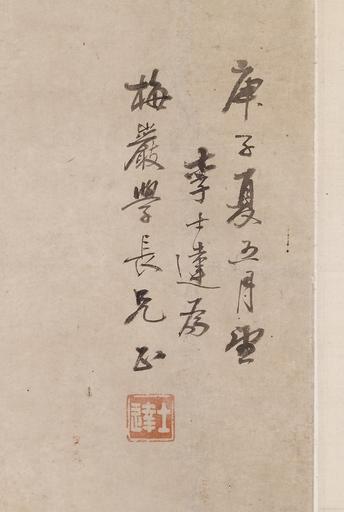 庚子夏五月望
李士達為
梅巖學長兄正
士達